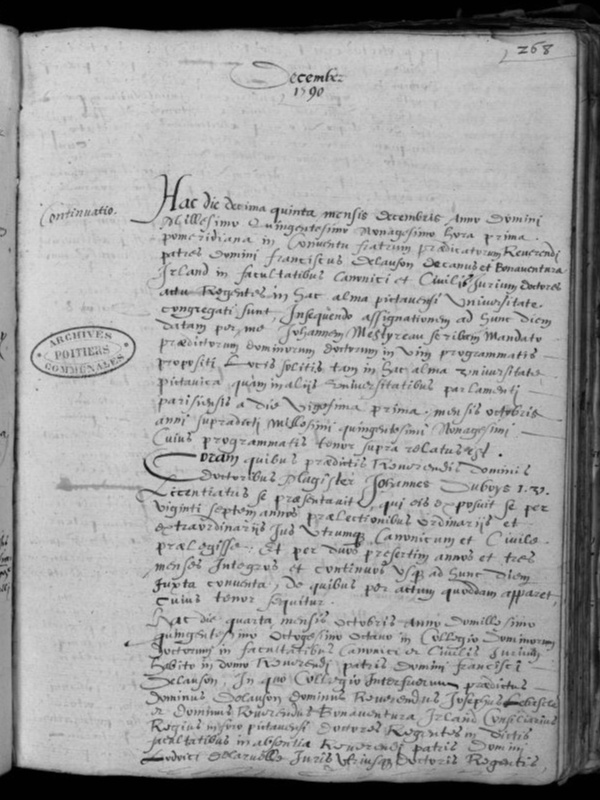 268
December
1590
Continuatio.
Hac die decima quinta mensis decembris Anno Domini
Millesimo Quingentesimo Nonagesimo hora prima
pomeridiana in Conventu fratrum prædicatorum Reverendi
patres Domini franciscus Delauson Decanus et Bonaventura
Irland in facultatibus Canonici et Civilis Jurium doctores
actu Regentes in hac alma pictavensi Universitate
congregati sunt, Insequendo assignationem ad hunc diem
datam per me Johannem Mestyreau scribam Mandato
prædictorum dominorum doctorum in vim programmatis
propositi Locis solitis tam in hac alma Universitate
pictavica quam in aliis Universitatibus parlamenti
parisiensis a die Vigesima prima mensis octobris
anni supradicti Millesimi quingentesimi Nonagesimi
Cuius programmatis tenor supra relatus est.
Coram quibus prædictis Reverendis Dominis
doctoribus Magister Johannes Duboys
Licentiatus se præsentavit, qui eis exposuit se per
viginti septem annos prælectionibus ordinariis et
extraordinariis Jus Utrumque Canonicum et Civile
prælegisse. Et per duos præsertim annos et tres
menses Integros et continuos usque ad hunc diem
Juxta conventa, de quibus per actum quoddam apparet,
Cuius tenor sequitur.
Hac die quarta mensis octobris Anno domillesimo
quingentesimo octogesimo octavo in Collegio Dominorum
doctorum in facultatibus Canonici et Civilis Jurium
habito in domo Reverendi patris Domini francisci
Delauson, In quo Collegio Interfuerunt prædictus
Dominus Delauson Dominus Reverendus Josephus
et Dominus Reverendus Bonaventura Irland Consiliarius
Regius in foro pictavensi doctores Regentes in dictis
facultatibus in absentia Reverendi patris Domini
Lodoici Delaruelle Juris Utriusque doctoris Regentis,
ARCHIVES
POITIERS
COMMUNALES